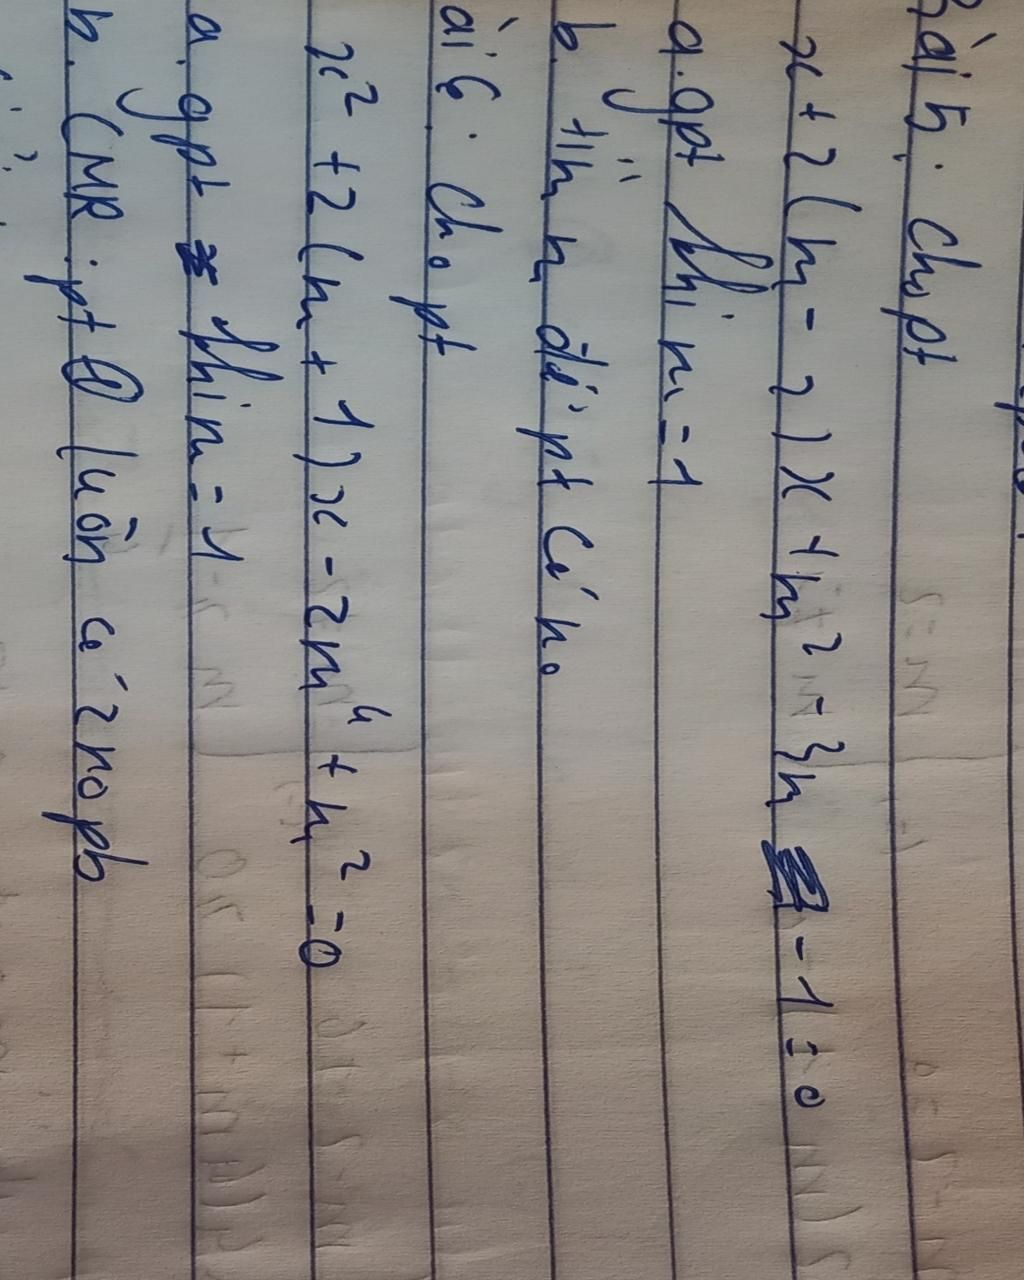 Bài 5: Cho pt
x + 2(m - 2)x + m² - 3m - 1 = 0
a. gpt khi m = 1
b. tìm m để pt có n₀
ài 6: Cho pt
x² + 2(m + 1)x - 2m⁴ + m² = 0
a. gpt khi m = 1
b. CMR: pt ① luôn có 2no pb